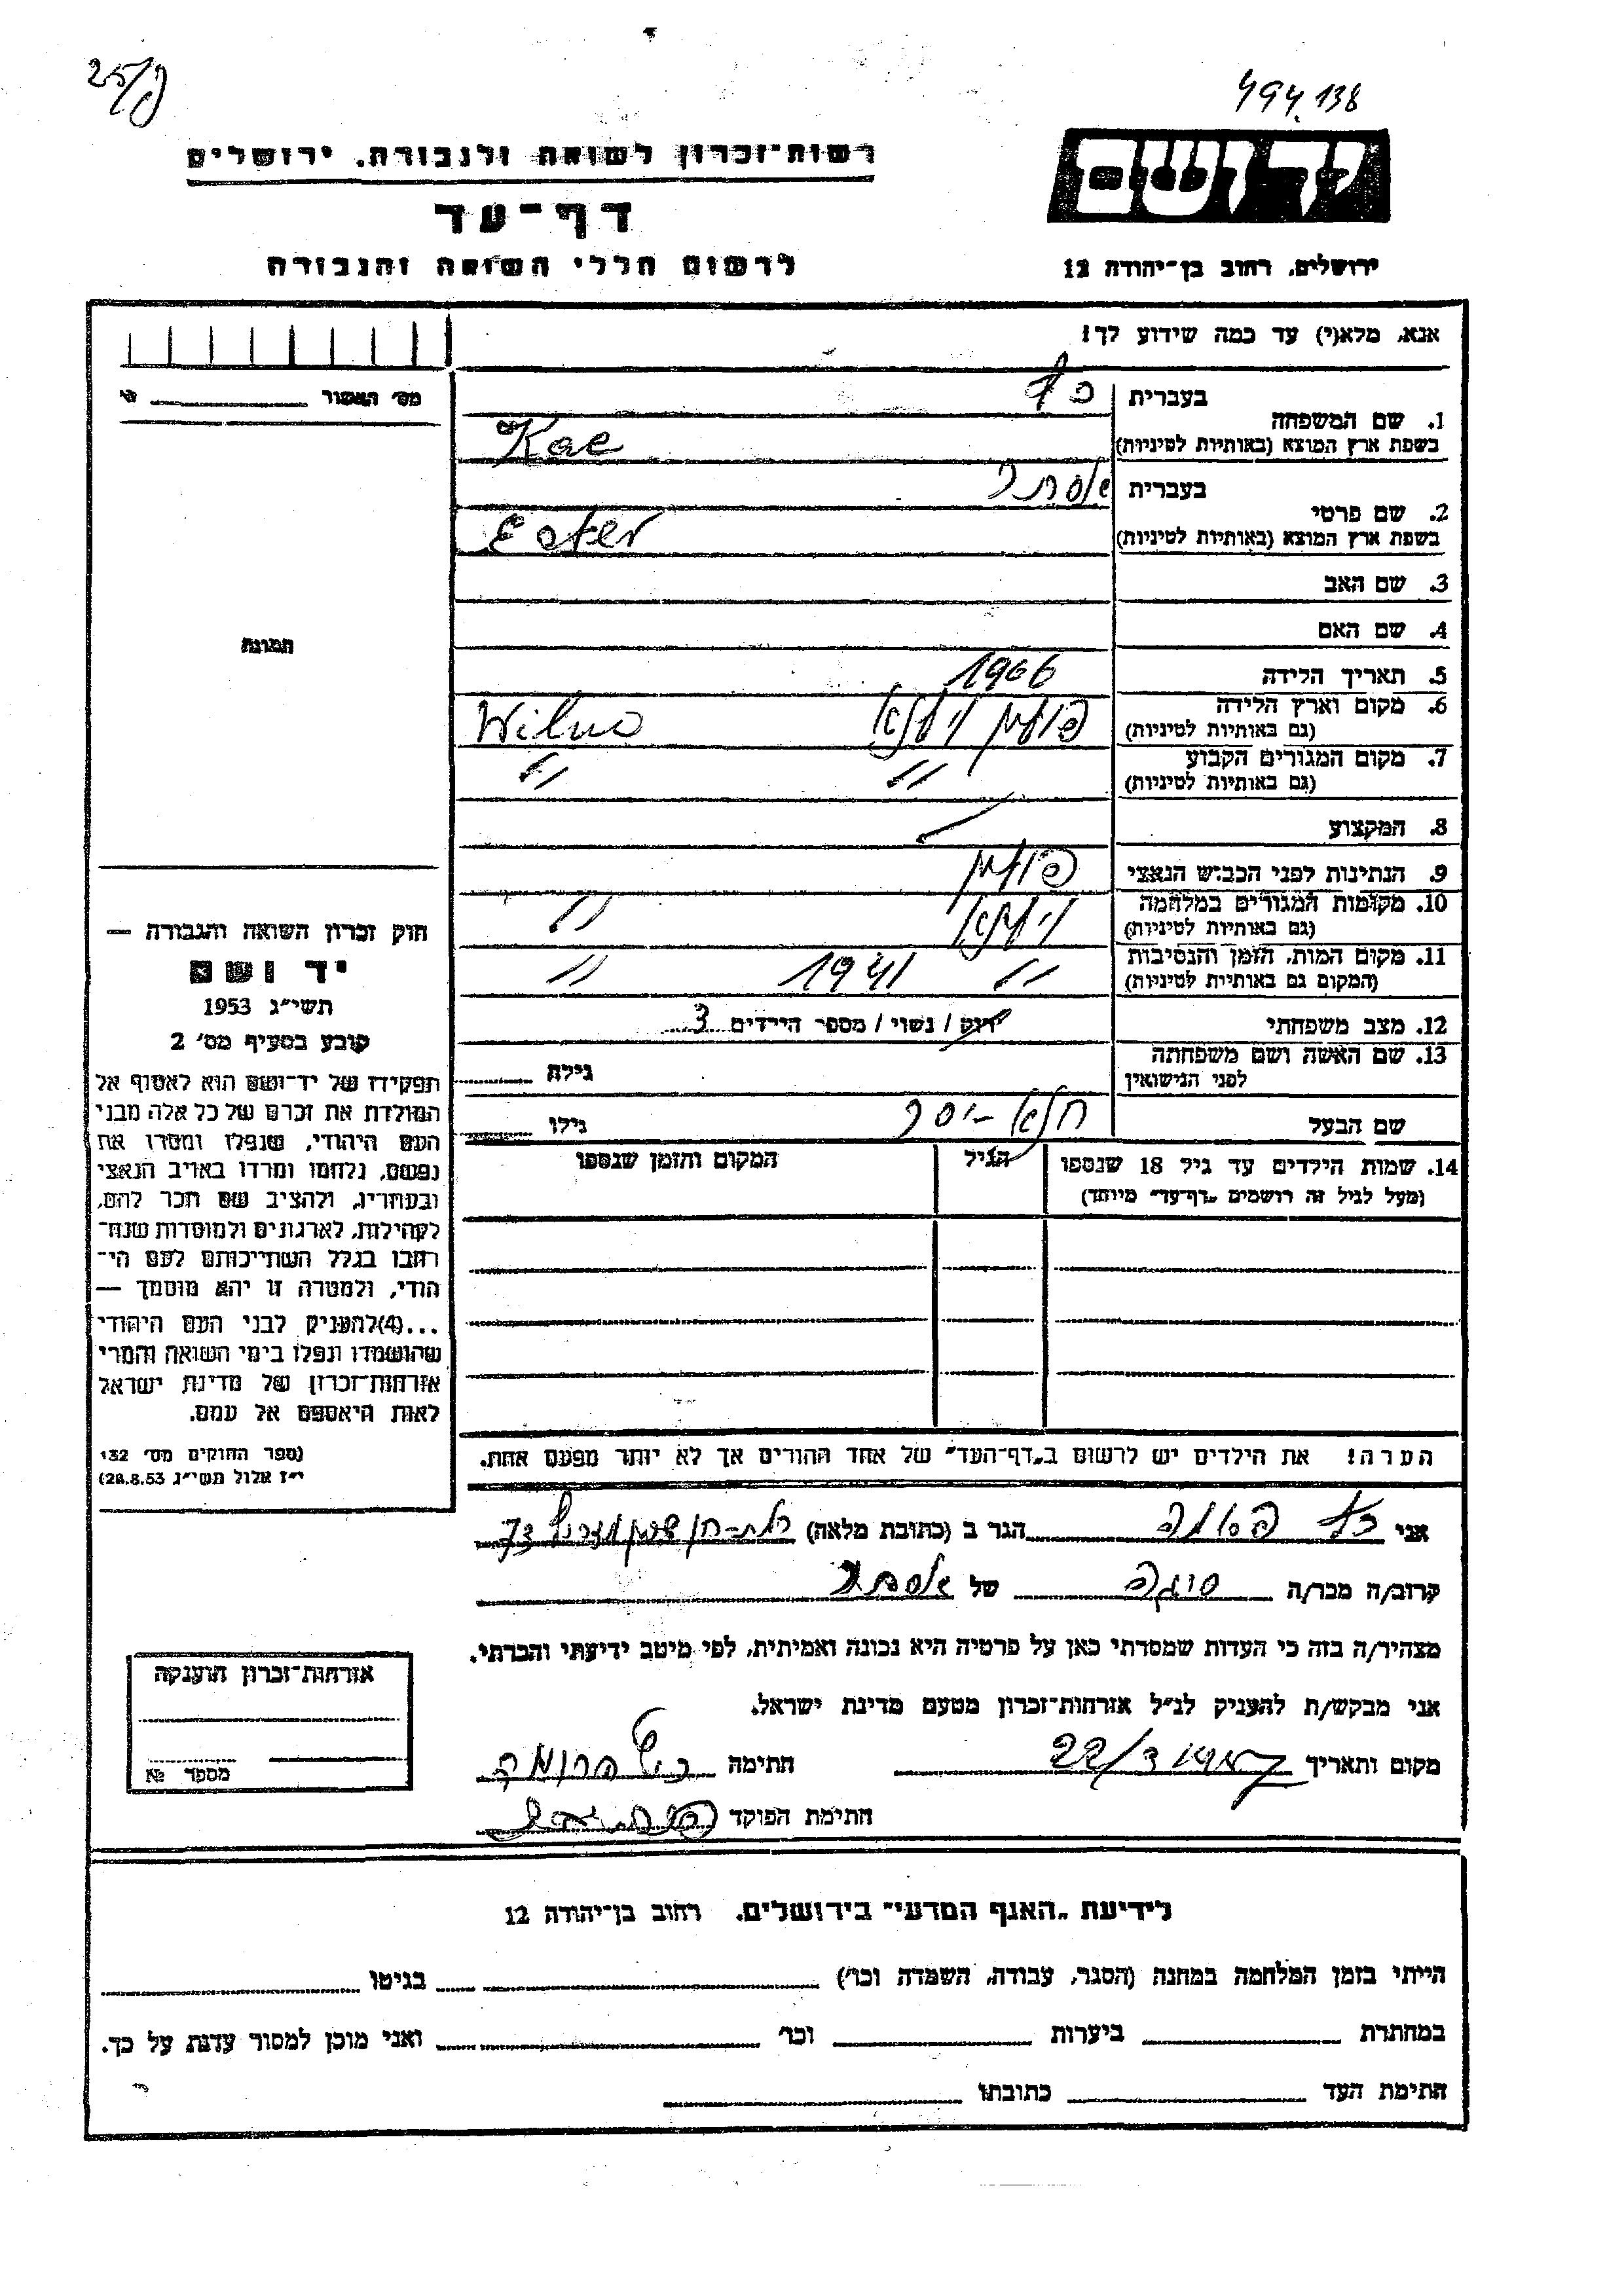 25/
494.138
רשות-זכרון לשואה ולגבורה, ירושלים
יד ושם
דף-עד
לרשום חללי השואה והגבורה
ירושלים, רחוב בן-יהודה 12
אנא, מלא(י) עד כמה שידוע לך!
מס' האשור
1. שם המשפחה
בעברית כץ
בשפת ארץ המוצא (באותיות לטיניות) Kac
2. שם פרטי
בעברית אסתר
בשפת ארץ המוצא (באותיות לטיניות) Ester
3. שם האב
4. שם האם
תמונה
5. תאריך הלידה 1906
6. מקום וארץ הלידה
(גם באותיות לטיניות) פולין וילנא Wilno
7. מקום המגורים הקבוע
(גם באותיות לטיניות) " "
8. המקצוע
9. הנתינות לפני הכבוש הנאצי פולין
10. מקומות המגורים במלחמה
(גם באותיות לטיניות) וילנא "
11. מקום המות, הזמן והנסיבות
(המקום גם באותיות לטיניות) " 1941 "
12. מצב משפחתי רווק / נשוי / מספר הילדים 3
13. שם האשה ושם משפחתה
לפני הנישואין
גילה
שם הבעל
גילו
14. שמות הילדים עד גיל 18 שנספו
(מעל לגיל זה רושמים "דף-עד" מיוחד)
הגיל
המקום והזמן שנספו
הערה! את הילדים יש לרשום ב"דף-העד" של אחד ההורים אך לא יותר מפעם אחת.
חוק זכרון השואה והגבורה —
יד ושם
תשי"ג 1953
קובע בסעיף מס' 2
תפקידו של יד-ושם הוא לאסוף אל
המולדת את זכרם של כל אלה מבני
העם היהודי, שנפלו ומסרו את
נפשם, נלחמו ומרדו באויב הנאצי
ובעוזריו, ולהציב שם וזכר להם,
לקהילות, לארגונים ולמוסדות שנח־
רבו בגלל השתייכותם לעם הי־
הודי, ולמטרה זו יהא מוסמך —
...(4) להעניק לבני העם היהודי
שהושמדו ונפלו בימי השואה והמרי
אזרחות-זכרון של מדינת ישראל
לאות היאספם אל עמם.
(ספר החוקים מס' 132
י"ז אלול תשי"ג 28.8.53)
אני כץ הגר ב (כתובת מלאה)
קרוב/ה מכר/ה של אסתר
מצהיר/ה בזה כי העדות שמסרתי כאן על פרטיה היא נכונה ואמיתית, לפי מיטב ידיעתי והכרתי.
אני מבקש/ת להעניק לנ"ל אזרחות-זכרון מטעם מדינת ישראל.
מקום ותאריך
חתימה
חתימת הפוקד
אזרחות-זכרון הוענקה
מספר №
לידיעת "האגף המדעי" בירושלים, רחוב בן-יהודה 12
הייתי בזמן המלחמה במחנה (הסגר, עבודה, השמדה וכו') בגיטו
במחתרת ביערות וכו' ואני מוכן למסור עדות על כך.
חתימת העד כתובתו